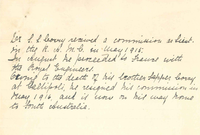 Dr. S. E. Corry received a commission as Lieut.
in the R. A. M. C. in May 1915.
In August he proceeded to France with
the Royal Engineers.
Owing to the death of his brother Sapper Corry
at Gallipoli, he resigned his commission in
May 1916, and is now on his way home
to South Australia.